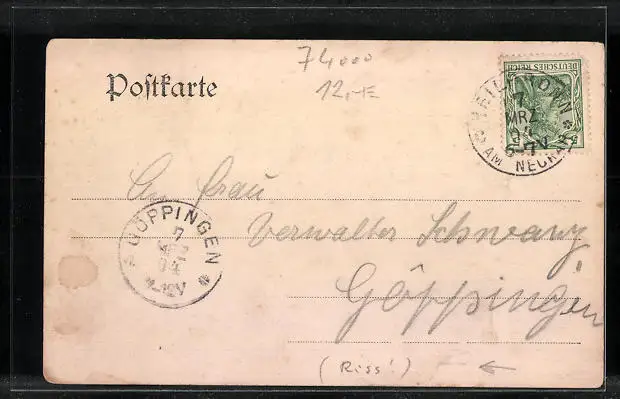 74000
12,-E
Postkarte
DEUTSCHES REICH
HEILBRONN
7
MRZ
6-7 N
AM NECKAR
An Frau
Verwalter Schwarz
Göppingen
GÖPPINGEN
7
MRZ
(Riss!) ←